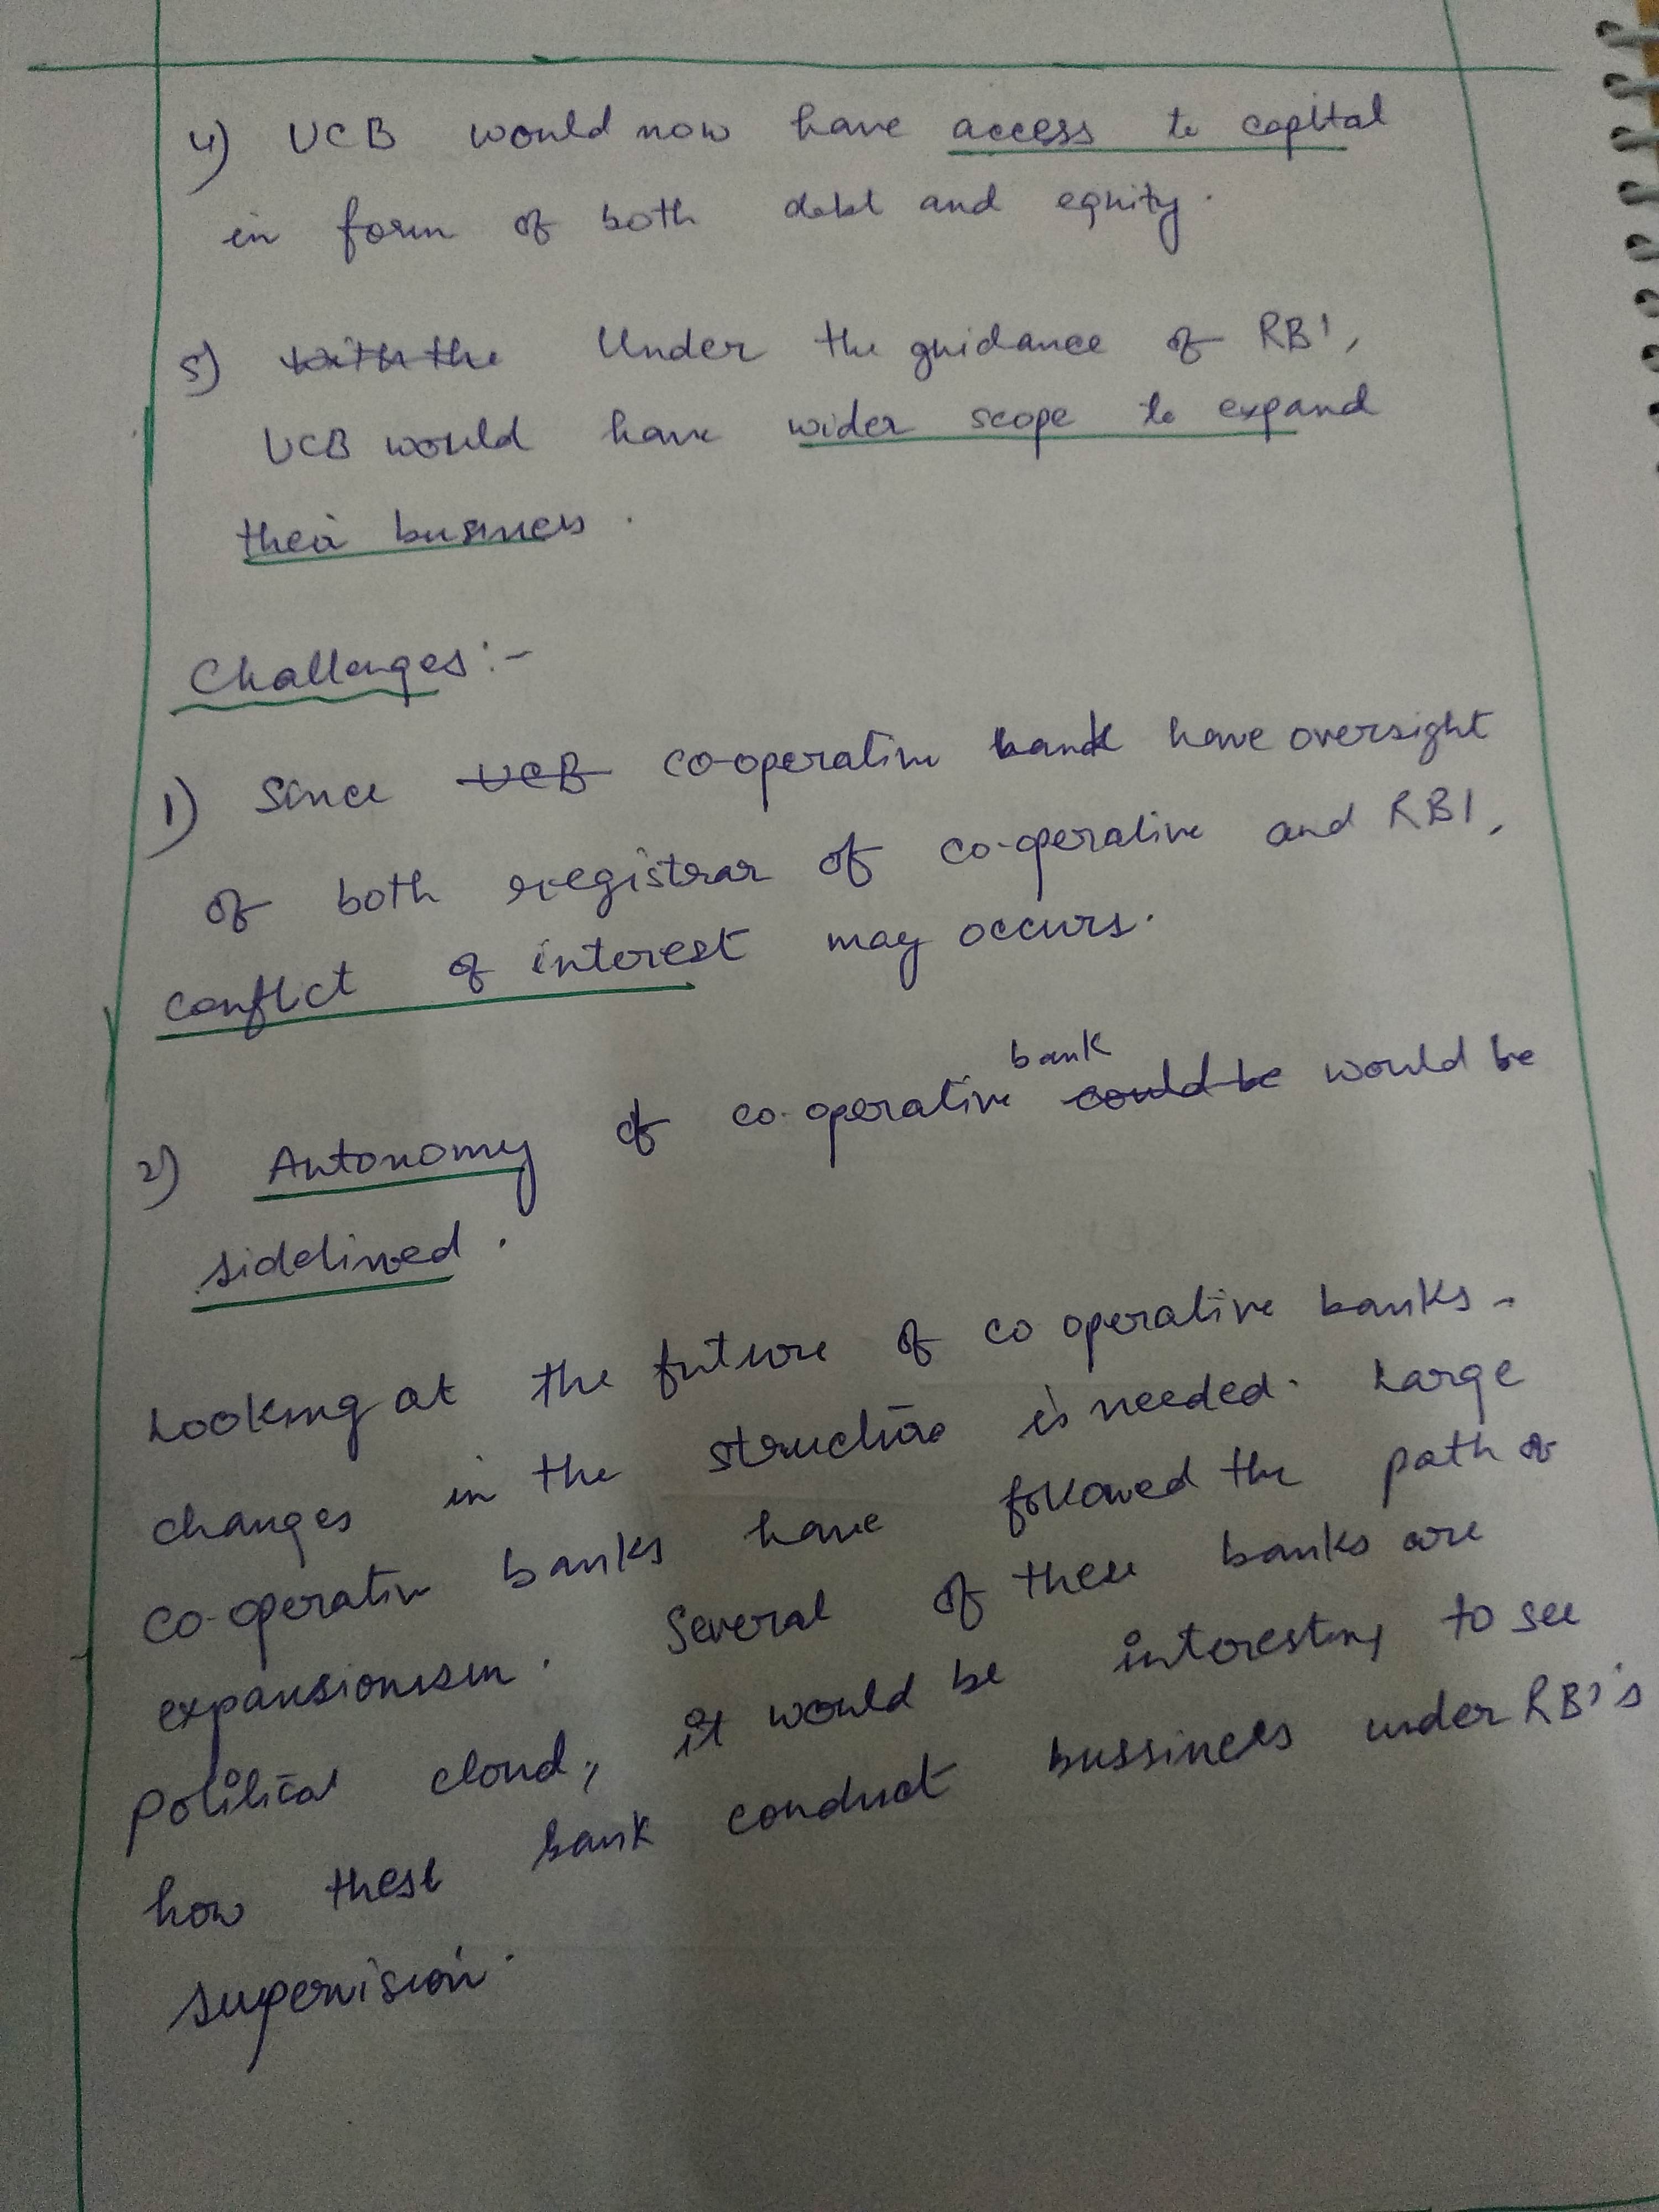 4) UCB would now have access to capital
in form of both debt and equity.
5) with the Under the guidance of RBI,
UCB would have wider scope to expand
their business.
Challenges:-
1) Since UCB co-operative bank have oversight
of both registrar of co-operative and RBI,
conflict of interest may occurs.
bank
2) Autonomy of co-operative could be would be
sidelined.
Looking at the future of co operative banks -
changes in the structure is needed. Large
co-operative banks have followed the path of
expansionism. Several of these banks are
political cloud, it would be interesting to see
how these bank conduct bussiness under RBI's
supervision.